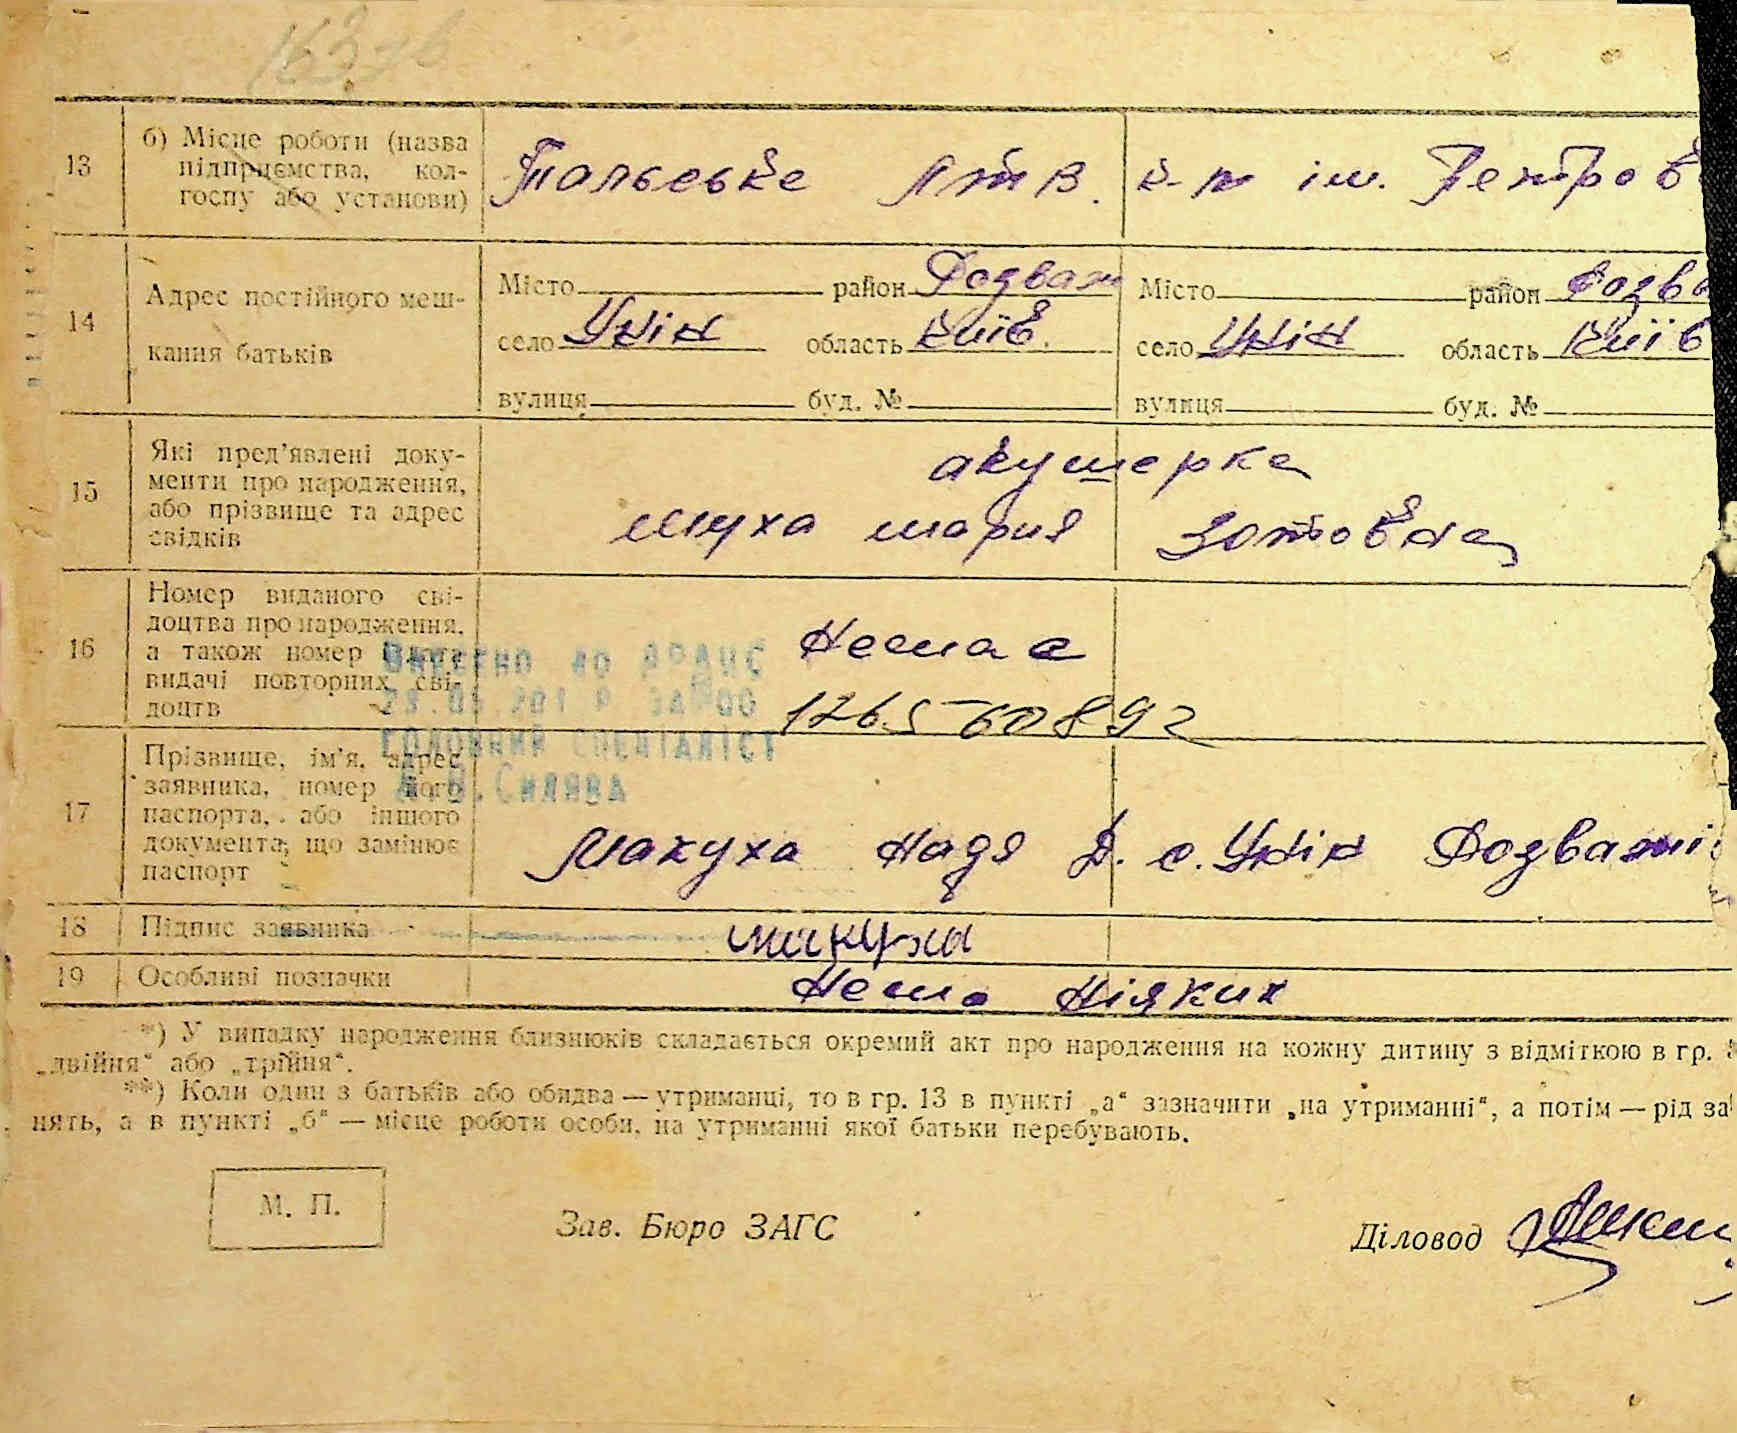 13
б) Місце роботи (назва
підприємства, кол-
госпу або установи)
Тальське Лтв. к-п ім. Петров
14
Адрес постійного меш-
кання батьків
Місто район Розваж Місто район Розва
село Унін область Київ. село Унін область Київ
вулиця буд. № вулиця буд. №
15
Які пред'явлені доку-
менти про народження,
або прізвище та адрес
свідків
акушерка
Муха Мария Зотовна
16
Номер виданого сві-
доцтва про народження,
а також номер і дата
видачі повторних сві-
доцтв
Немає
Внесено до ДРАЦС
ГОЛОВНИЙ СПЕЦІАЛІСТ
17
Прізвище, ім'я, адрес
заявника, номер його
паспорта, або іншого
документа, що замінює
паспорт
Макуха Надя Д. с. Унін Розважі
18
Підпис заявника
Макуха
19
Особливі позначки
Нема Ніяких
*) У випадку народження близнюків складається окремий акт про народження на кожну дитину з відміткою в гр.
„двійня“ або „трійня“.
**) Коли один з батьків або обидва — утриманці, то в гр. 13 в пункті „а“ зазначити „на утриманні“, а потім — рід за
нять, а в пункті „б“ — місце роботи особи, на утриманні якої батьки перебувають.
М. П.
Зав. Бюро ЗАГС
Діловод